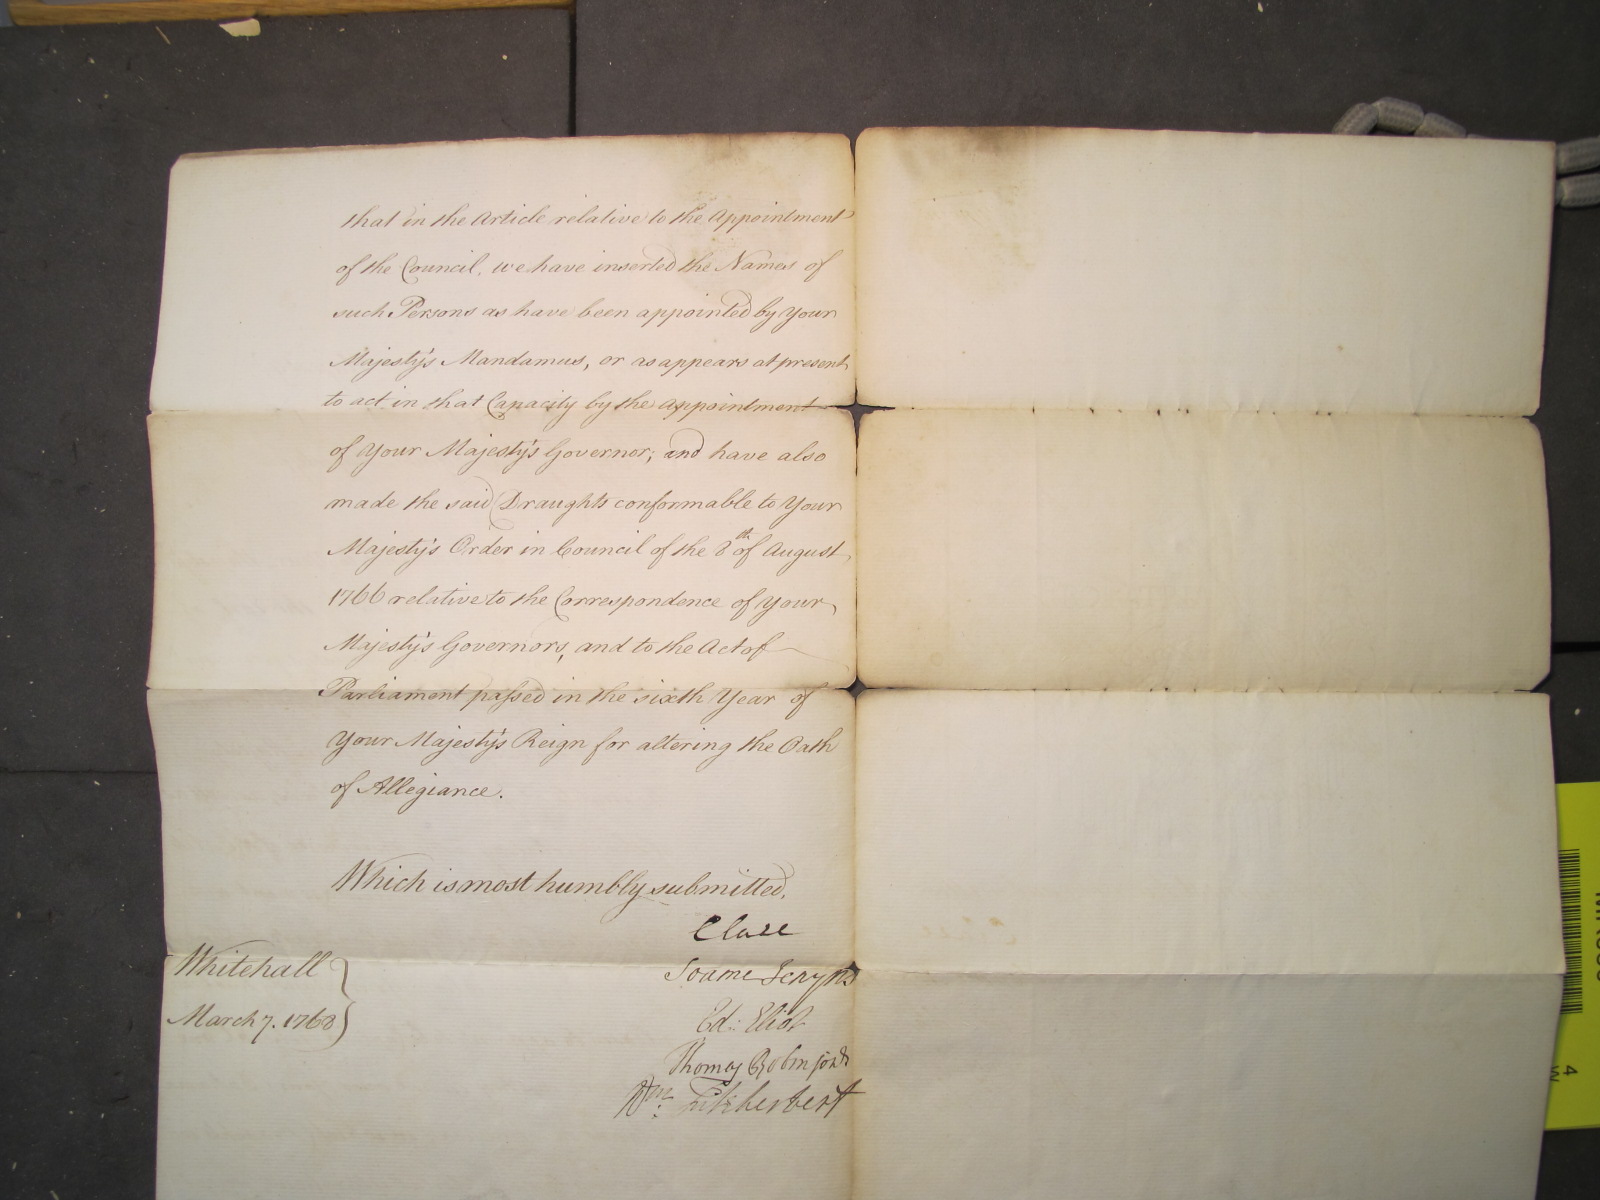 that in the Article relative to the Appointment
of the Council, we have inserted the Names of
such Persons as have been appointed by Your
Majesty's Mandamus, or as appears at present
to act in that Capacity by the appointment
of Your Majesty's Governor; and have also
made the said Draughts conformable to Your
Majesty's Order in Council of the 8th of August
1766 relative to the Correspondence of Your
Majesty's Governors, and to the Act of
Parliament passed in the sixth Year of
Your Majesty's Reign for altering the Oath
of Allegiance.
Which is most humbly submitted.
Clare
Soame Jenyns
Ed: Eliot
Thomas Robinson
Wm: Fitzherbert
Whitehall
March 7. 1768